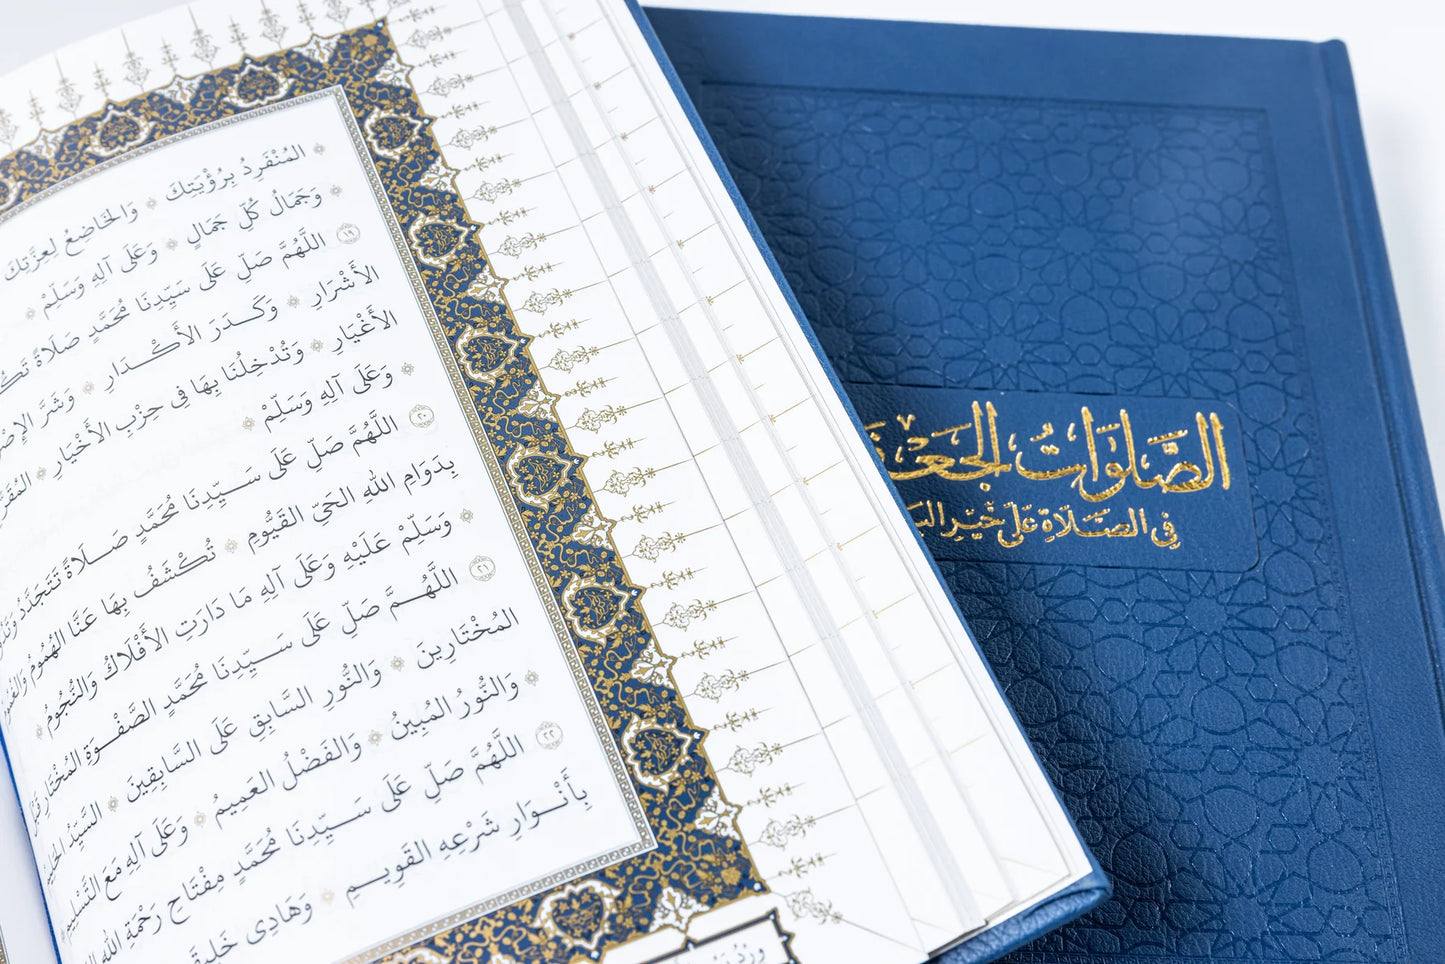 المُنْفَرِدُ بِرُؤْيَتِكَ ۞ وَالخَاضِعُ لِعِزَّتِكَ
۞ وَجَمَالُ كُلِّ جَمَالٍ ۞ وَعَلَى آلِهِ وَسَلِّمْ ۞
١٩ اللَّهُمَّ صَلِّ عَلَى سَيِّدِنَا مُحَمَّدٍ صَلَاةً
الأَشْرَارِ ۞ وَكَدَرَ الأَكْدَارِ ۞ وَشَرَّ
الأَغْيَارِ ۞ وَتُدْخِلُنَا بِهَا فِي حِزْبِ الأَخْيَارِ ۞
۞ وَعَلَى آلِهِ وَسَلِّمْ ۞
٢٠ اللَّهُمَّ صَلِّ عَلَى سَيِّدِنَا مُحَمَّدٍ صَلَاةً تَتَجَدَّدُ
بِدَوَامِ اللهِ الحَيِّ القَيُّومِ ۞ تُكْشَفُ بِهَا عَنَّا الهُمُومُ
۞ وَسَلِّمْ عَلَيْهِ وَعَلَى آلِهِ مَا دَارَتِ الأَفْلَاكُ وَالنُّجُومُ ۞
٢١ اللَّهُمَّ صَلِّ عَلَى سَيِّدِنَا مُحَمَّدٍ الصَّفْوَةِ المُخْتَارِ
المُخْتَارِينَ ۞ وَالنُّورِ السَّابِقِ عَلَى السَّابِقِينَ ۞ السَّيِّدُ
۞ وَالنُّورُ المُبِينُ ۞ وَالفَضْلُ العَمِيمُ ۞ وَعَلَى آلِهِ مَعَ التَّسْلِيمِ ۞
٢٢ اللَّهُمَّ صَلِّ عَلَى سَيِّدِنَا مُحَمَّدٍ مِفْتَاحِ رَحْمَةِ اللهِ
بِأَنْوَارِ شَرْعِهِ القَوِيمِ ۞ وَهَادِي
وِرْدُ
الصَّلَوَاتُ
فِي الصَّلَاةِ عَلَى خَيْرِ